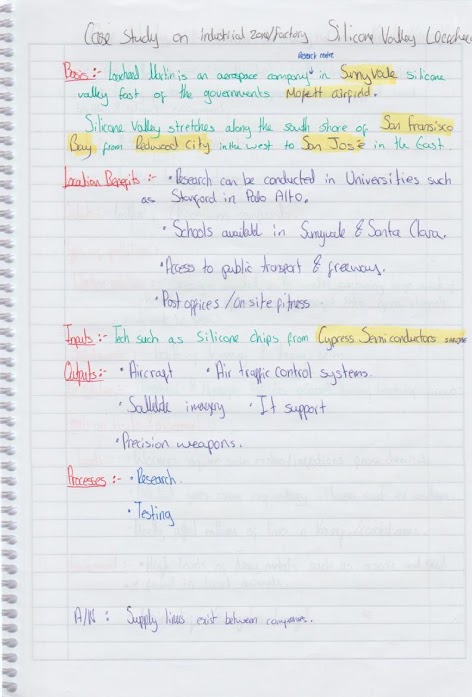 Case Study on Industrial Zone/Factory Silicone Valley
Research centre
Basis :- Lockheed Martin is an aerospace company in Sunnyvale silicone
valley East of the governments Moffett airfield.
Silicone Valley stretches along the south shore of San Fransisco
Bay from Redwood city in the west to San José in the East.
Location Benefits :- • Research can be conducted in Universities such
as Stanford in Palo Alto.
• Schools available in Sunnyvale & Santa Clara.
• Access to public transport & freeways.
• Post offices / on site fitness
Inputs :- Tech such as Silicone chips from Cypress Semiconductors
Outputs :- • Aircraft • Air traffic control systems.
• Satellite imagery • It support
• Precision weapons.
Processes :- • Research.
• Testing
A/N : Supply lines exist between companies.